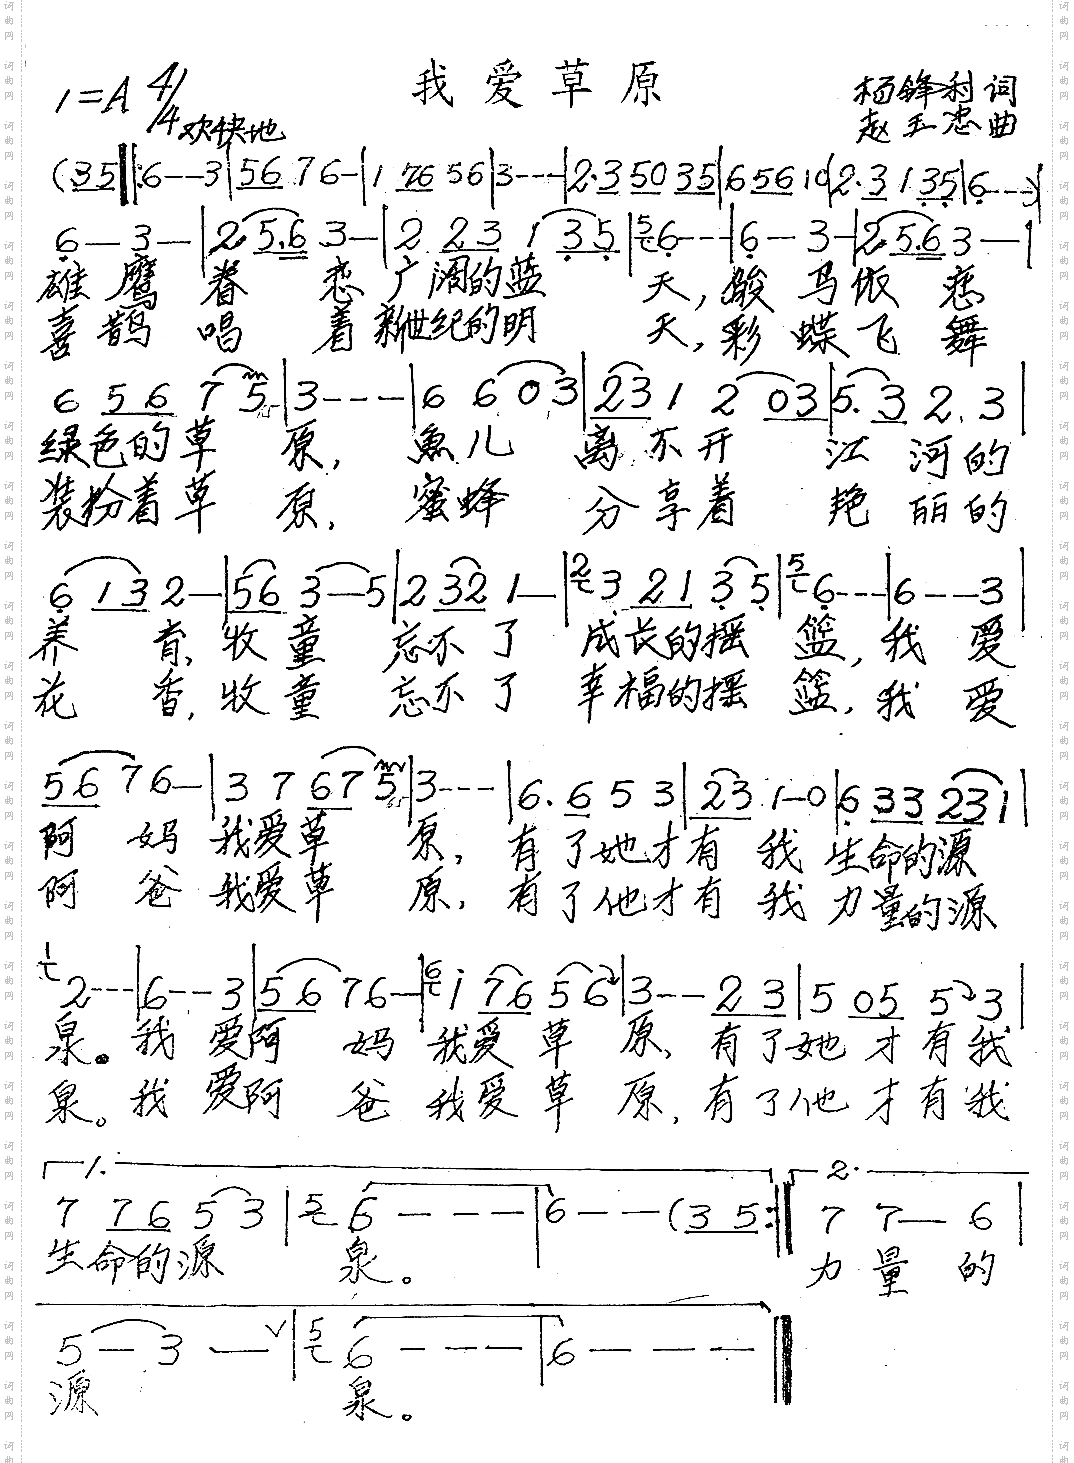 我爱草原
1=A 4/4 欢快地
杨锋利 词
赵玉忠 曲
(35‖:6--3|56 76-|1 76 56|3---|2·3 50 35|6 56 10|2·3 1 35|6---)|
6-3-|2·56 3-|2 23 1 35|5 6---|6-3-|2·56 3-|
雄鹰眷恋广阔的蓝天，骏马依恋
喜鹊唱着新世纪的明天，彩蝶飞舞
6 56 7 5|3---|6 6 03|23 1 2 03|5·3 2·3|
绿色的草原，魚儿离不开江河的
装扮着草原，蜜蜂分享着艳丽的
6 13 2-|56 3-5|2 32 1-|2 3 21 35|5 6---|6--3|
养育，牧童忘不了成长的摇篮，我爱
花香，牧童忘不了幸福的摇篮，我爱
56 76-|3 7 67 5|3---|6·6 5 3|23 1-0|6 33 231|
阿妈我爱草原，有了她才有我生命的源
阿爸我爱草原，有了他才有我力量的源
1 2---|6--3|56 76-|6 1 76 56|3-- 23|5 05 5 3|
泉。我爱阿妈我爱草原，有了她才有我
泉。我爱阿爸我爱草原，有了他才有我
1. 2.
7 76 5 3|5 6---|6--(35:‖7 7-6|
生命的源泉。力量的
5-3-∨|5 6---|6---‖
源泉。
词曲网